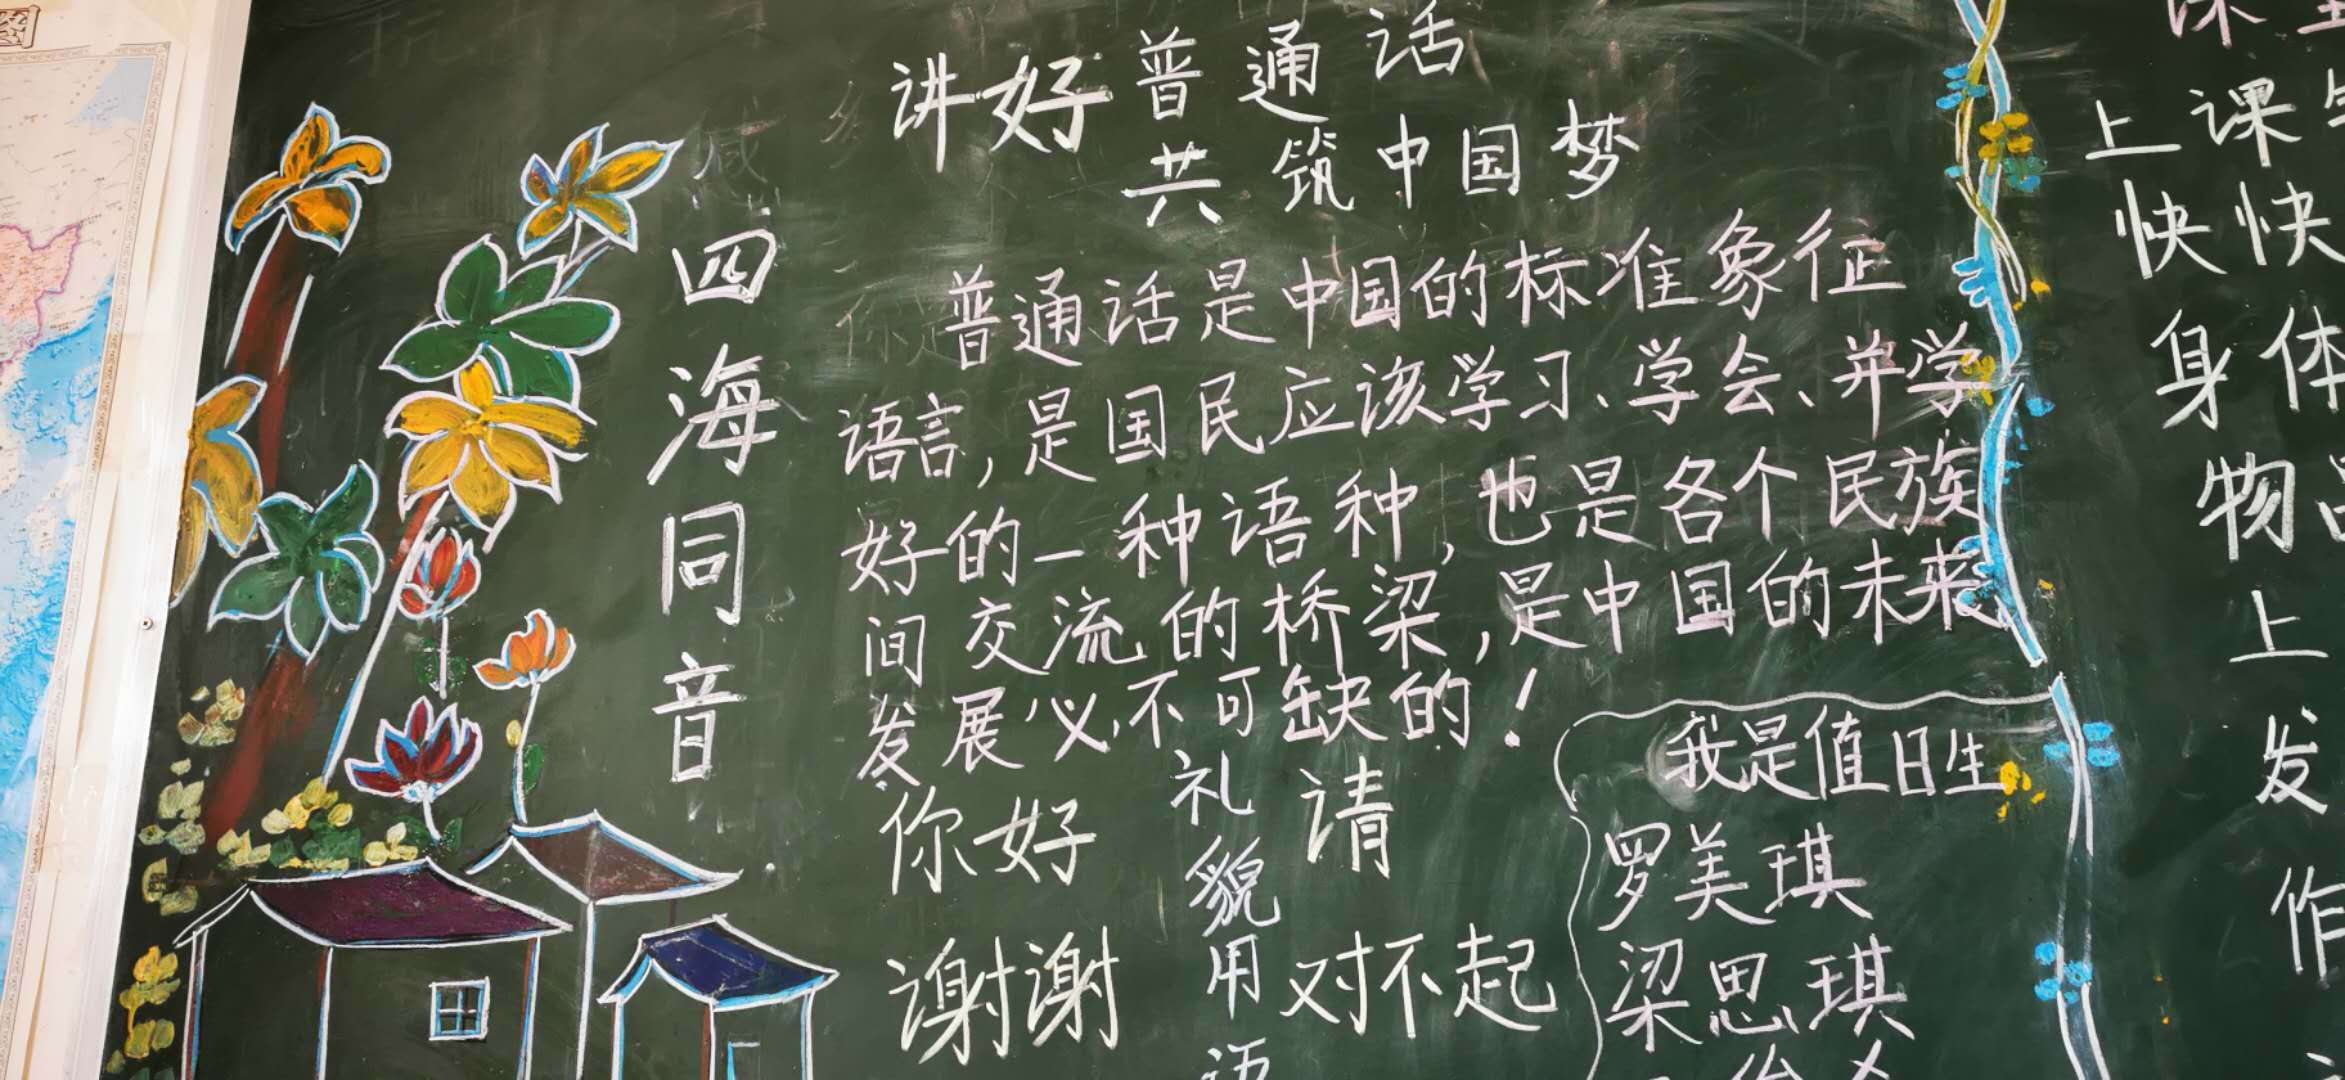 图
四海同音
讲好普通话
共筑中国梦
普通话是中国的标准象征
语言,是国民应该学习、学会、并学
好的一种语种,也是各个民族
间交流的桥梁,是中国的未来、
发展必不可缺的!
你好
谢谢
礼貌用语
请
对不起
我是值日生
罗美琪
梁思琪
上课
快快
身体
物品
上
发
作